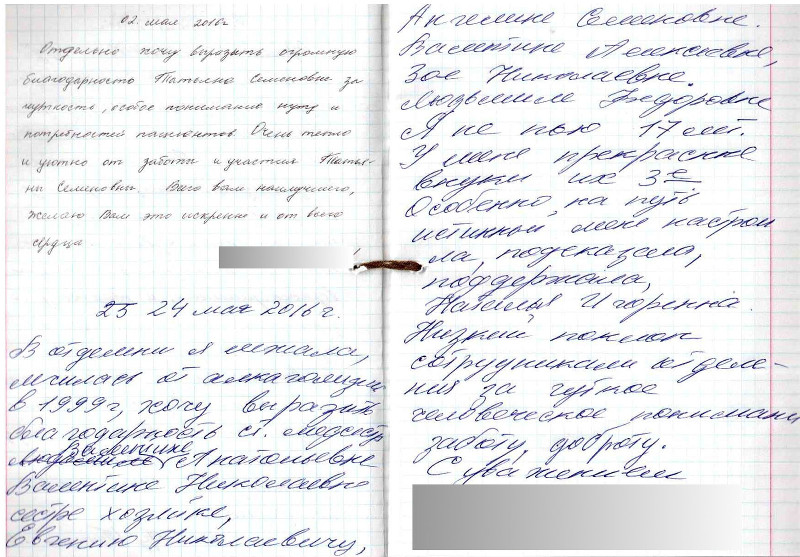 02. мая 2016г
Отдельно хочу выразить огромную
благодарность Татьяне Семеновне за
чуткость, особое понимание нужд и
потребностей пациентов. Очень тепло
и уютно от заботы и участия Татья-
ны Семеновны. Всего вам наилучшего,
желаю Вам это искренне и от всего
сердца
25 24 мая 2016г.
В отделении я лежала,
лечилась от алкаголизма
в 1999г, хочу выразить
благодарность ст. медсестре
Валентине
Анатольевне
Валентине Николаевне
сестре хозяйке,
Евгению Николаевичу,
Ангелине Семеновне.
Валентине Алексеевне,
Зое Николаевне.
Людьмиле Федоровне
Я не пью 17 лет.
У меня прекрасные
внуки их 3е
Особенно, на путь
истинный меня настрои
ла, подсказала,
поддержала,
Наталья Игоревна.
Низкий поклон
сотрудникам отделе-
ния за чуткое
человеческое понимание
заботу, доброту.
С уважением